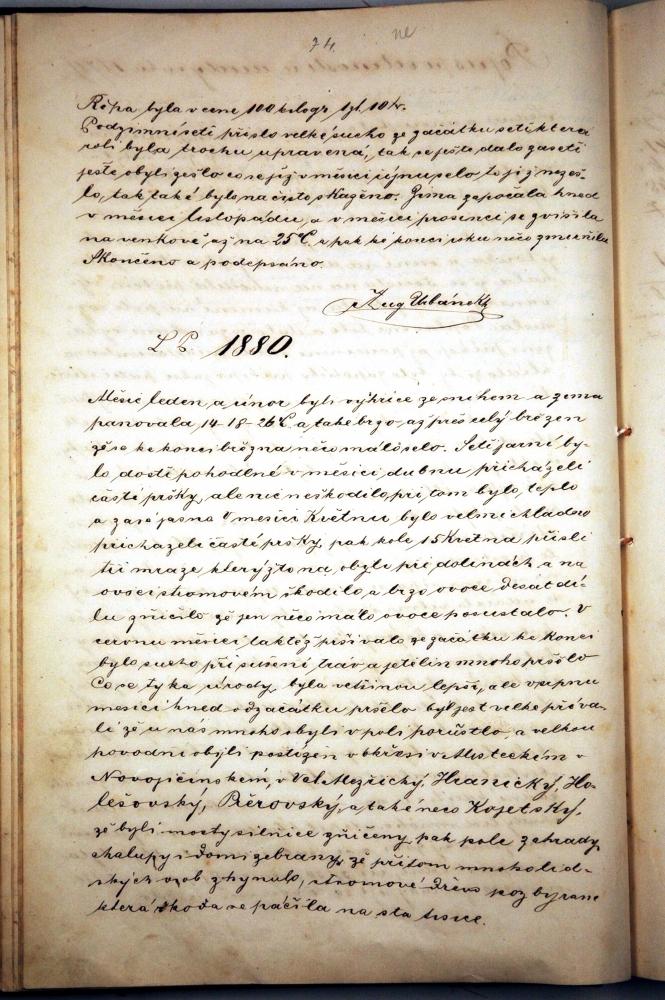 74. ne
Řépa byla v cene 100 kilogr 1 zl. 10 kr.
Podzimní setí přišlo velké sucho ze začátku setí která
roli byla trochu upravená, tak se ješte dalo zaseti
ješte obyli zešlo co se již v měsici říjnu selo to již nezeš-
lo, tak také bylo na čisto skaženo. Zima započala hned
v měsici listopadu, a v měsici prosinci se zvišila
na venkově až na 25°C. a pak ke konci roku něco zmernila
Skončeno a podepsáno.
Aug Urbánek
L P. 1880.
Měsic leden, a únor byli výhrice ze snihem a zema
panovala 14-18-26°C. a take brzo až přes celý březen
že se ke konci března něco málo selo. Setí jarné by-
lo dosti pohodlné v měsici dubnu přicházeli
časté pršky, ale nic neškodilo, při tom bylo, teplo
a zasé jasna v mesici Květnu bylo velmi chladno
přichazeli časté pršky, pak kole 15 Května přisli
tři mraze kterýžto na, obyli při dolinách a na
ovoci stromovém škodilo, a brzo ovoce desát dí-
lu zničilo že jen něco málo ovoce pozustalo. V
cervnu měsici taktéž pršívalo ze začátku ke konci
bylo sucho při sušení tráv, a jetilin mnoho pršelo
Co se tyka úrody, byla vetšinou lepší, ale v srpnu
mesici hned od začátku pršelo byl jest velke příva-
li že u nás mnoho obyli v poli porůstlo, a velkou
povodni obyli postižen v okřesi v Místeckém v
Novojičínském, v Val. Mezřický, Hranický, Ho-
lešovský, Přěrovský, a také neco Kojetský,
že byli mosty silnice zničeny, pak pole zahrady,
chalupy i domi zebrany, že přitom mnoho lid-
ských osob zhynulo, stromové dřevo pozbyrane
která škoda se páčila na sta tisice.